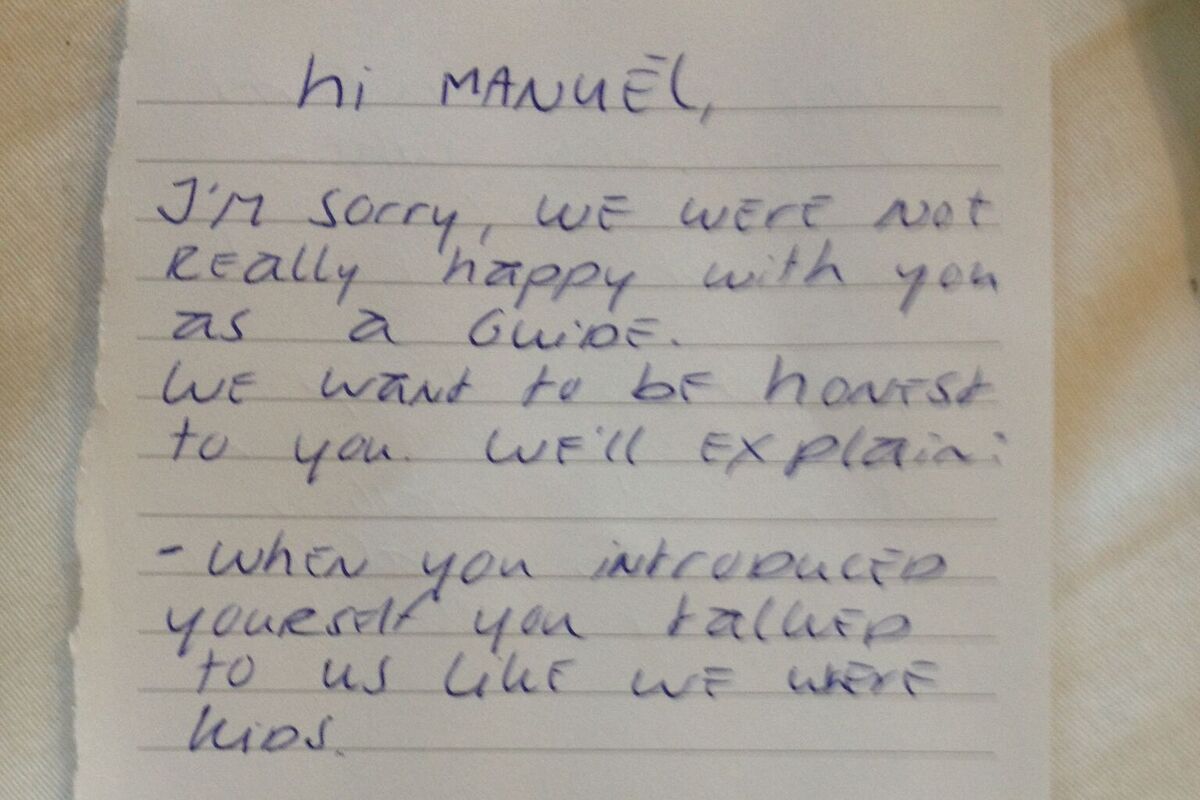 hi MANUEL,
I'M sorry, WE WERE Not
REally happy with you
as a GuiDE.
WE want to bE honest
to you. WE'll Explain:
- WhEN you introDucED
yourself you talkED
to us likE WE WERE
kiDs.